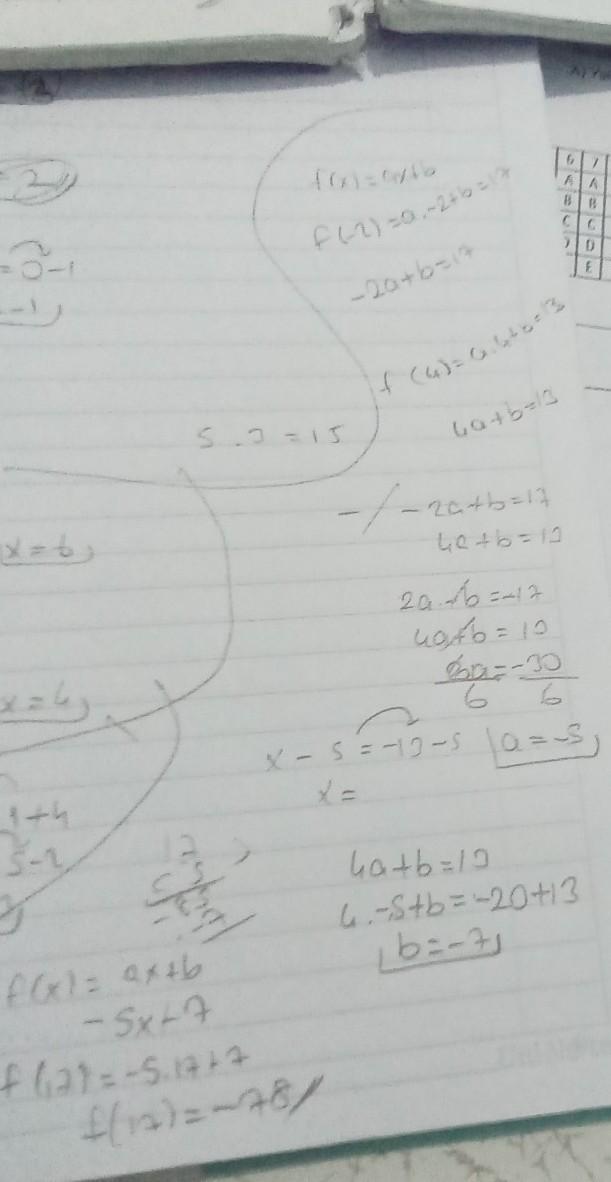 2
= 2
f(x)=ax+b
f(-2)=a.-2+b=17
= 0-1
-1
-2a+b=17
f(4)=a.4+b=13
4a+b=13
5.3=15
-/-2a+b=17
4a+b=13
x=6
2a-b=-17
4a+b=13
6a=-30
6 6
x=4
x-5=-13-5 a=-5
x=
1+4
5-2
17
5
4a+b=13
4.-5+b=-20+13
b=-7
f(x)=ax+b
-5x+7
f(17)=-5.17+7
f(17)=-78
0 1
A A
B B
C C
D D
E